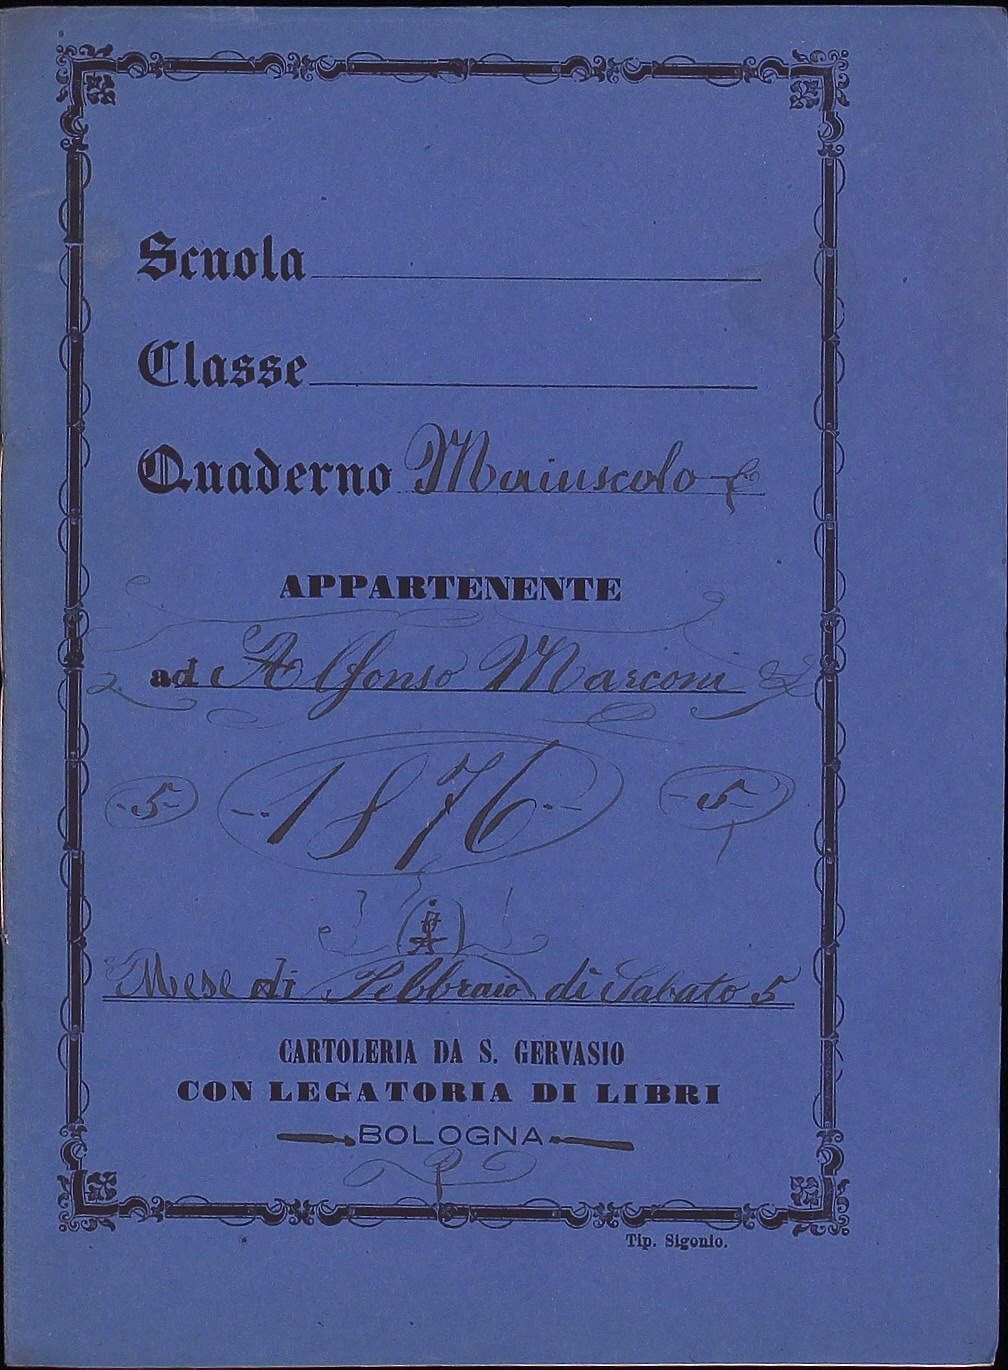 Scuola
Classe
Quaderno Maiuscolo
APPARTENENTE
ad Alfonso Marconi
-5- -1876- -5-
Mese di Febbraio di Sabato 5
CARTOLERIA DA S. GERVASIO
CON LEGATORIA DI LIBRI
BOLOGNA
Tip. Sigonio.